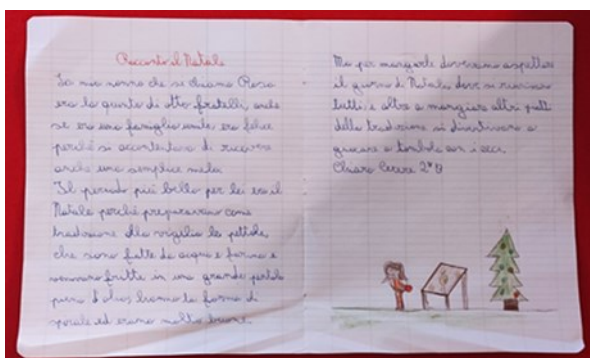 Racconto il Natale
La mia nonna che si chiama Rosa
era la quinta di otto fratelli, anche
se era una famiglia umile era felice
perché si accontentava di ricevere
anche una semplice mela.
Il periodo più bello per lei era il
Natale perché preparavano come
tradizione alla vigilia le pettole,
che sono fatte da acqua e farina e
venivano fritte in una grande pentola
piena d'olio, hanno la forma di
spirale ed erano molto buone.
Ma per mangiarle dovevano aspettare
il giorno di Natale dove si riunivano
tutti, e oltre a mangiare altri piatti
della tradizione si divertivano a
giocare a tombola con i ceci.
Chiara Cerere 2ª B